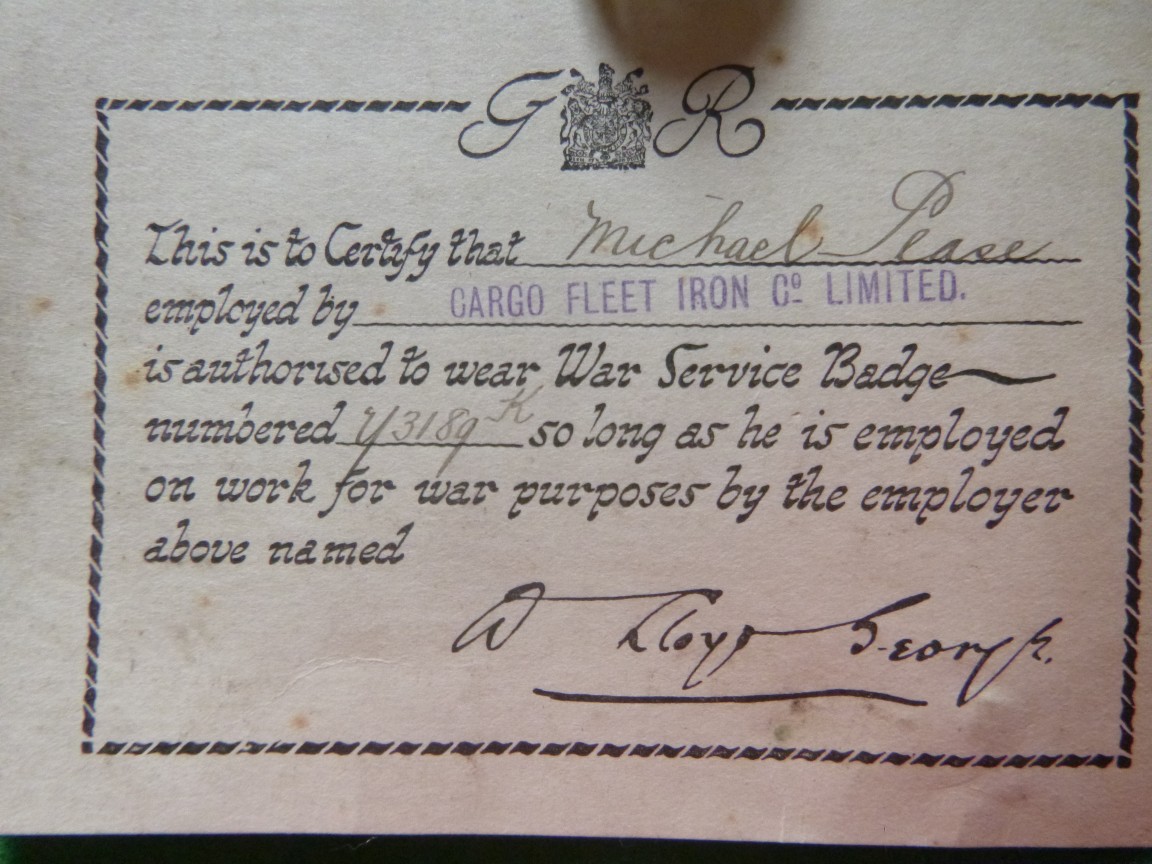 G R
This is to Certify that Michael Pease
employed by CARGO FLEET IRON Cº LIMITED.
is authorised to wear War Service Badge
numbered so long as he is employed
on work for war purposes by the employer
above named
D Lloyd George.